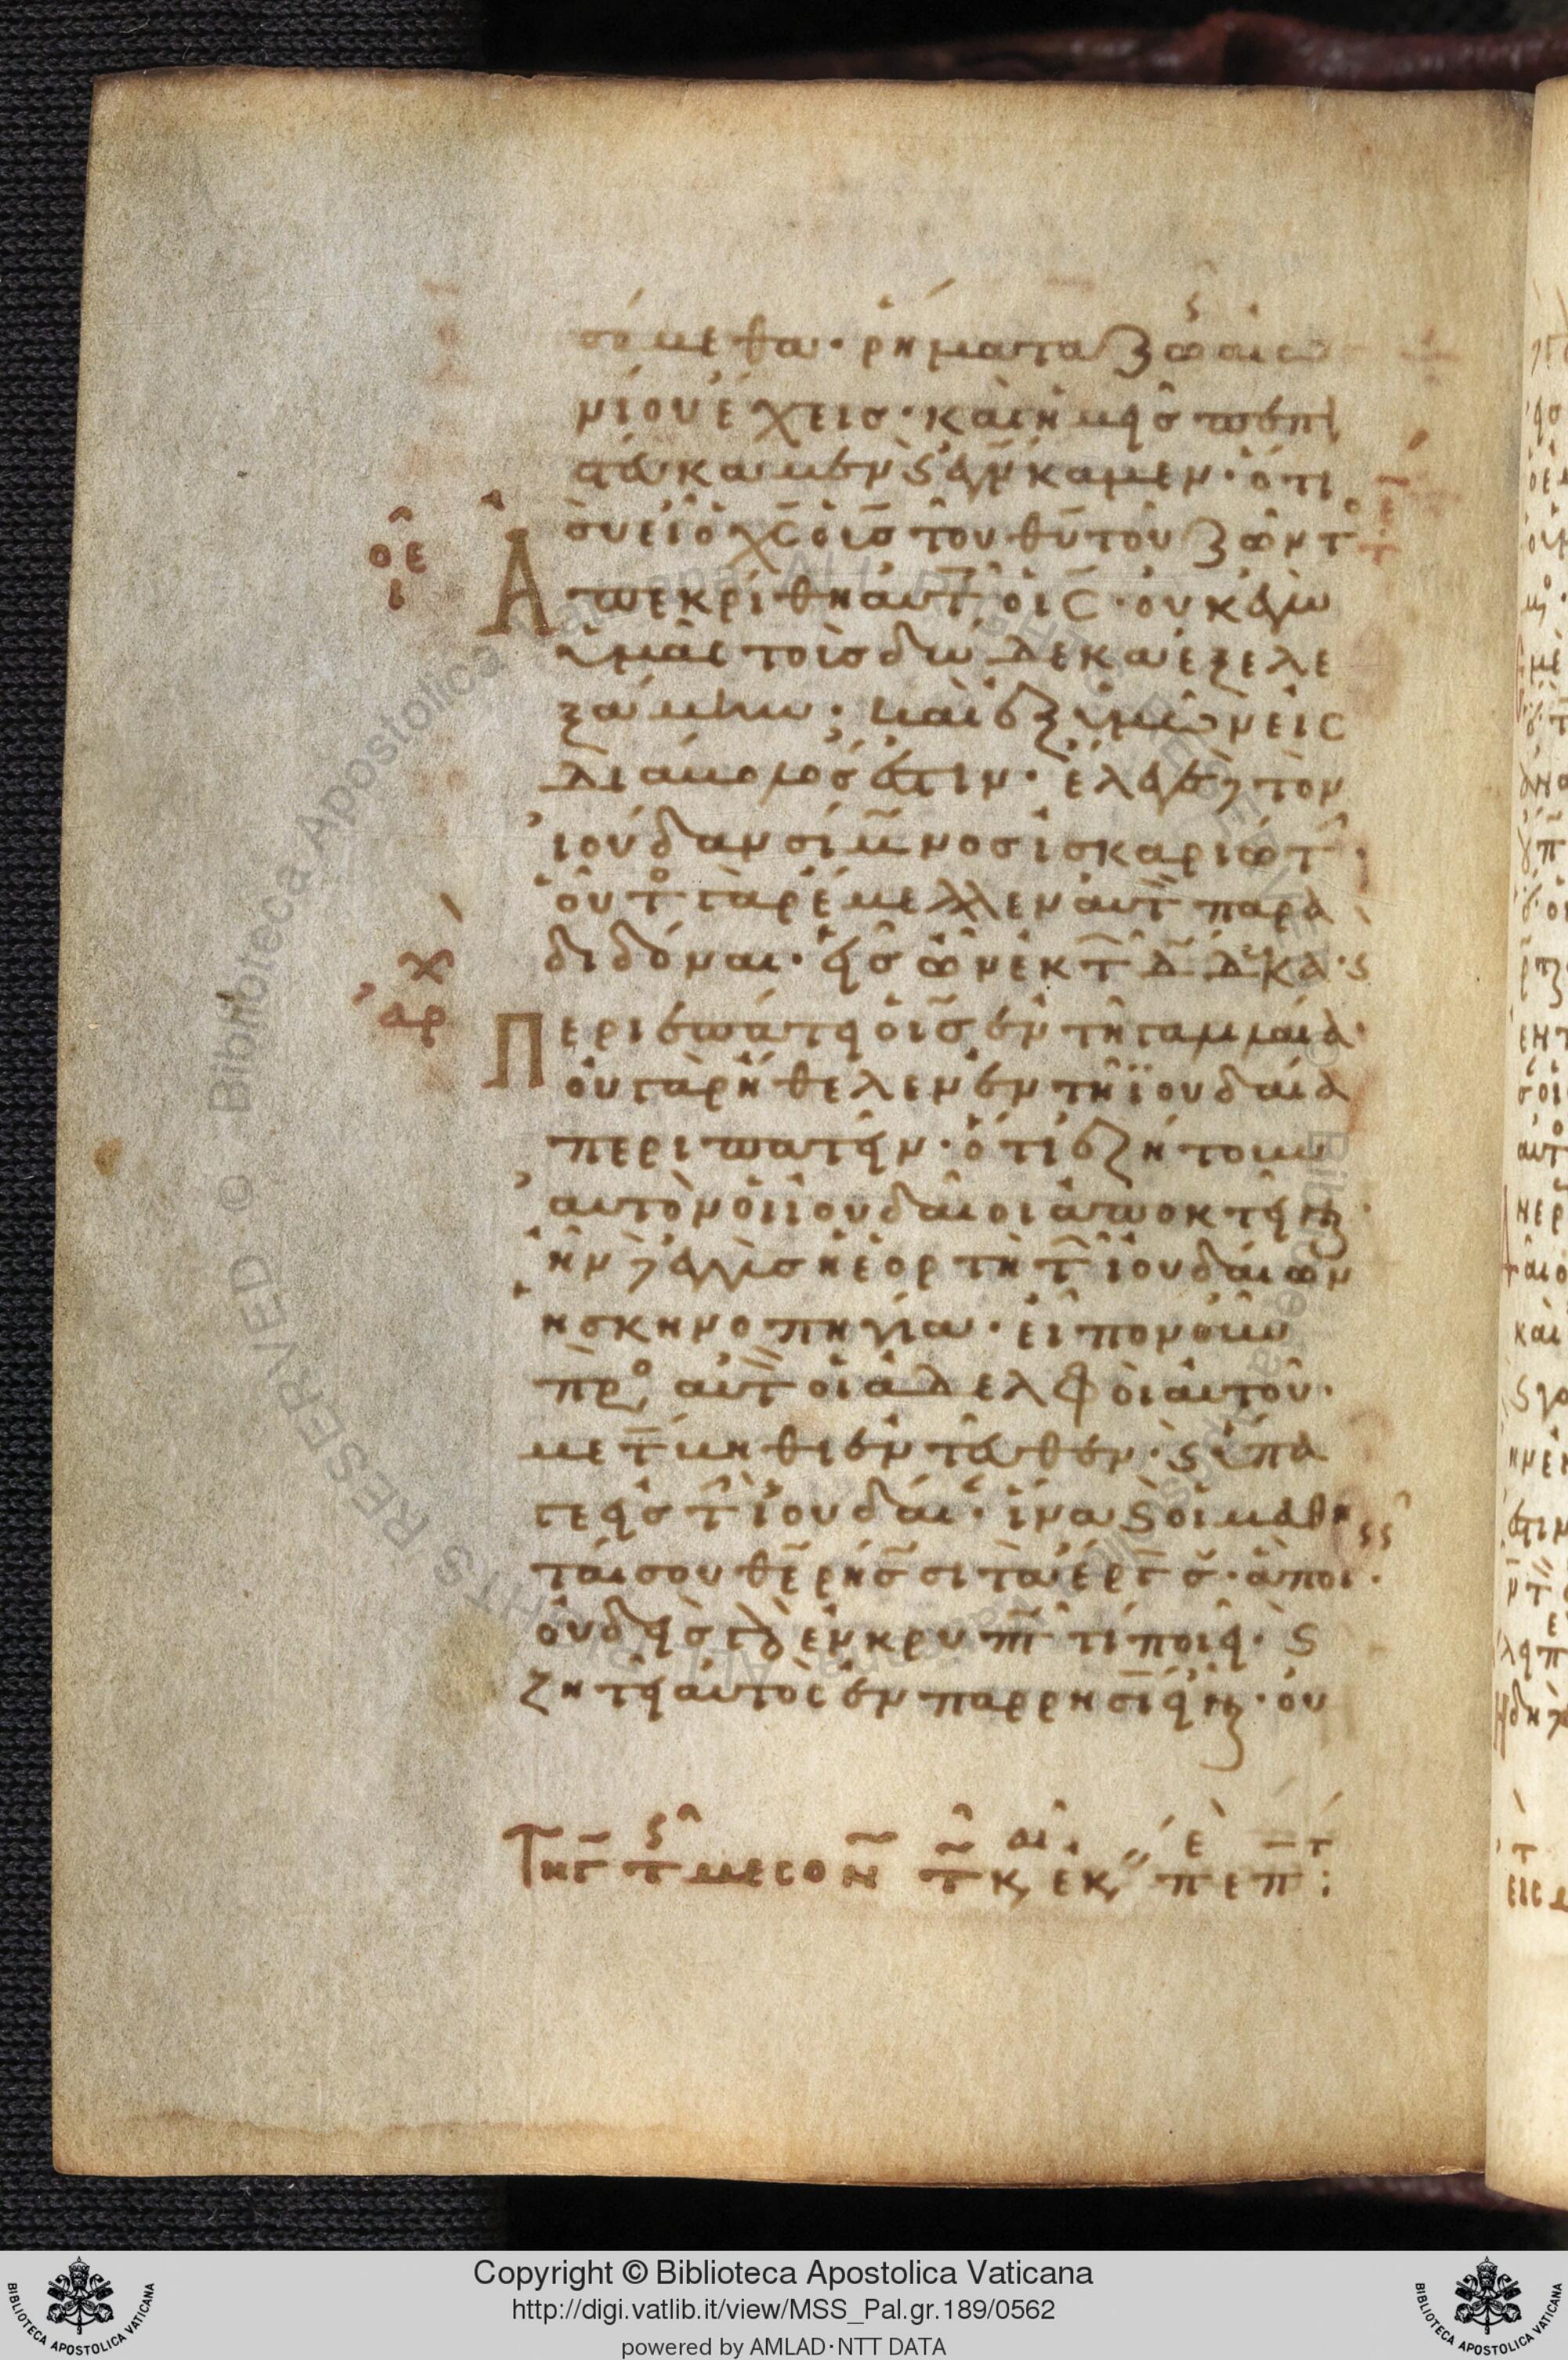 σόμεθα· ῥήματα ζω αἰω
νίου ἔχεις· καὶ ἡμεῖς πεπι
στεύκαμεν ϗ ἐγνώκαμεν· ὅτι
σὺ εἶ ὁ χς ὁ ις τοῦ θυ τοῦ ζῶντο
Ἀπεκρίθη αὐτ ὁ ις· οὐκ ἐγὼ
ὑμᾶς τοὺς δώδεκα ἐξελε
ξάμην· καὶ ἐξ ὑμῶν εἷς
διάβολός ἐστιν· ἔλεγε τὸν
ἰούδαν σίμνος ἰσκαριώτ·
οὗτο γὰρ ἔμελλεν αὐτ παρα
διδόναι· εἷς ὢν ἐκ τ δώδκα· ϗ
Περιεπάτει ὁ ις ἐν τῆ γαλιλαία·
οὐ γὰρ ἤθελεν ἐν τῆ ἰουδαία
περιπατεῖν· ὅτι ἐζήτουν
αὐτὸν οἱ ἰουδαῖοι ἀποκτεῖναι·
ἦν δὲ ἐγγὺς ἡ ἑορτὴ τ ἰουδαίων
ἡ σκηνοπηγία· εἶπον οὖν
πρὸ αὐτ οἱ ἀδελφοὶ αὐτοῦ·
μετάβηθι ἐντεῦθεν· ϗ ὕπα
γε εἰς τ ἰουδαί· ἵνα ϗ οἱ μαθη
ταί σου θερήσσι τὰ ἔργ σ· ἃ ποι·
οὐδεὶς γὰρ ἐν κρυπτ τι ποιεῖ· ϗ
ζητεῖ αὐτὸς ἐν παρρησίᾳ εἶναι· οὐ
ὀε
ι
ἀρχ
Τη γ τ μεσον
Copyright © Biblioteca Apostolica Vaticana
http://digi.vatlib.it/view/MSS_Pal.gr.189/0562
powered by AMLAD·NTT DATA
BIBLIOTECA APOSTOLICA VATICANA
BIBLIOTECA APOSTOLICA VATICANA